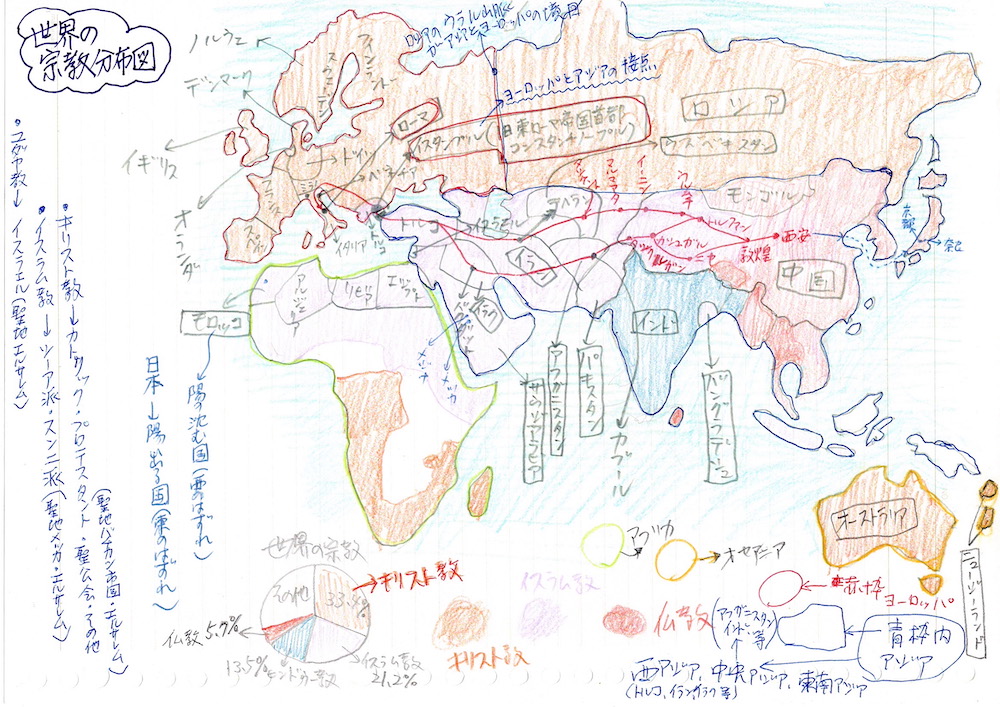 世界の
宗教分布図
ノルウェー
デンマーク
イギリス
オランダ
スウェーデン
フィンランド
ロシアのウラル山脈
がアジアとヨーロッパの境界
ヨーロッパとアジアの接点
ローマ
イスタンブール(旧東ローマ帝国首都
コンスタンチノープル)
ロシア
ウズベキスタン
ドイツ
ベネチア
フランス
スペイン
イタリア
トルコ
イスラエル
テヘラン
タシケント
イーニン
ウルムチ
トルファン
モンゴル
カシュガル
タシュクルガン
ニヤ
敦煌
西安
中国
京都
奈良
モロッコ
アルジェリア
リビア
エジプト
バグダット
イラク
イラン
メジナ
メッカ
サウジアラビア
アフガニスタン
パキスタン
カブール
インド
バングラデーシュ
・ユダヤ教→イスラエル(聖地エルサレム)
・キリスト教→カトリック・プロテスタント・聖公会・その他
(聖地バチカン市国・エルサレム)
・イスラム教→シーア派・スンニ派(聖地メッカ・エルサレム)
陽の沈む国(西のはずれ)
日本→陽出る国(東のはずれ)
世界の宗教
その他
33.%
キリスト教
仏教5.7%
13.5%
ヒンドゥー教
イスラム教
21.2%
キリスト教
イスラム教
仏教
アフリカ
オセアニア
赤枠
ヨーロッパ
青枠内
アジア
(アフガニスタン
インド等)
西アジア、中央アジア、東南アジア
(トルコ、イラン、イラク等)
オーストラリア
ニュージーランド